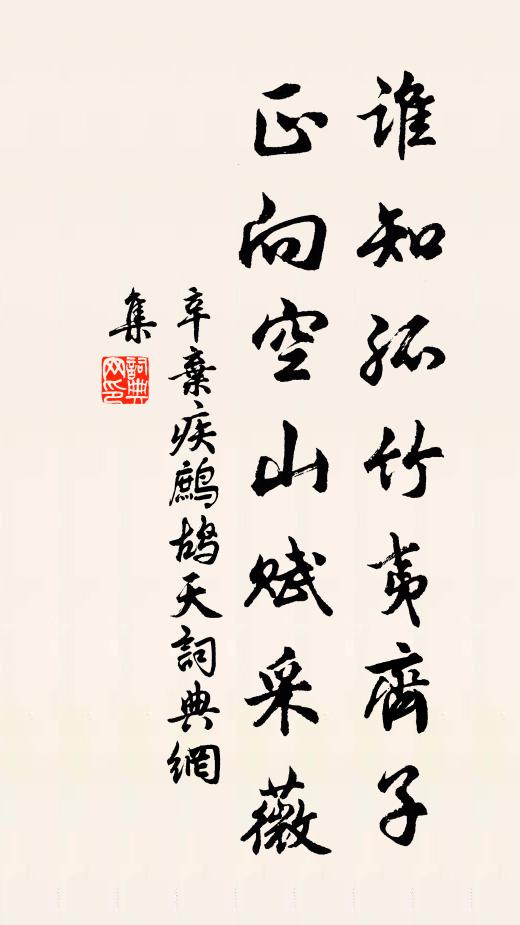 誰知孤竹夷齊子
正向空山賦采薇
辛棄疾鷓鴣天詞典網
集
詞典
网印